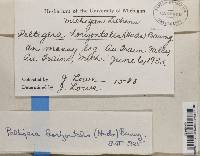 Herbarium of the University of Michigan
Michigan Lichens
Peltigera horizontalis (Huds) Baumg.
on mossy log Au Train Valley
Au Train, Mich. June 6, 1933
Collected by J. Lowe - 1583
Determined by J. Lowe
Peltigera horizontalis (Huds) Baumg.